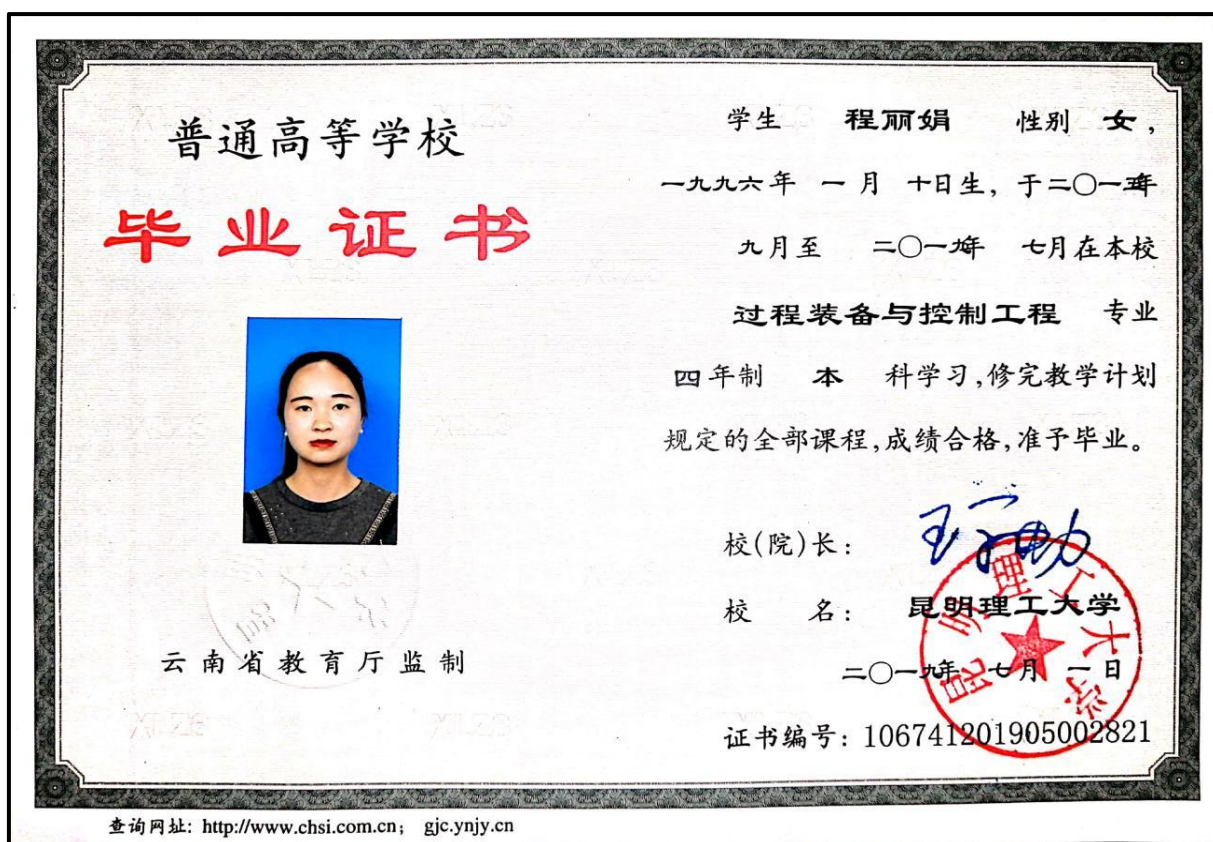 普通高等学校
毕业证书
云南省教育厅监制
学生 程丽娟 性别 女,
一九九六年 一月 十日生, 于二〇一五年
九月至 二〇一九年 七月在本校
过程装备与控制工程 专业
四年制 本 科学习,修完教学计划
规定的全部课程,成绩合格,准予毕业。
校(院)长:
校 名: 昆明理工大学
二〇一九年 七月 一日
证书编号: 106741201905002821
昆明理工大学
查询网址: http://www.chsi.com.cn; gjc.ynjy.cn